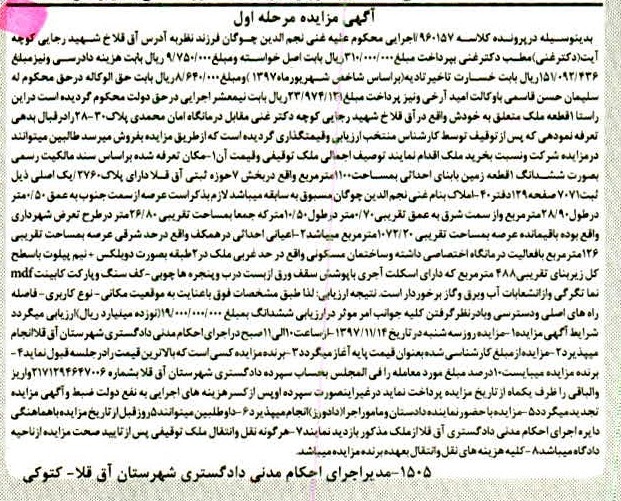 آگهی مزایده مرحله اول
بدینوسیله درپرونده کلاسه ۹۶۰۱۵۷/اجرایی محکوم علیه غنی نجم الدین چوگان فرزند نظربه آدرس آق قلا خ شهید رجایی کوچه
آیت(دکترغنی)مطب دکترغنی بپرداخت مبلغ ۳۱۰/۰۰۰/۰۰۰ریال بابت اصل خواسته ومبلغ ۹/۷۵۰/۰۰۰ریال بابت هزینه دادرسی ونیزمبلغ
۱۵۱/۰۹۲/۴۳۶ریال بابت خسارت تاخیرتادیه(براساس شاخص شهریورماه ۱۳۹۷)ومبلغ ۸/۶۴۰/۰۰۰ریال بابت حق الوکاله درحق محکوم له
سلیمان حسن قاسمی باوکالت امید آرخی ونیز پرداخت مبلغ ۲۳/۹۷۴/۱۲۱ریال بابت نیمعشر اجرایی درحق دولت محکوم گردیده است دراین
راستا ۱قطعه ملک متعلق به خودش واقع درآق قلا خ شهید رجایی کوچه دکتر غنی مقابل درمانگاه امان محمدی پلاک ۳۰-۲۸رادرقبال بدهی
تعرفه نمودهی که پس از توقیف توسط کارشناس منتخب ارزیابی وقیمتگذاری گردیده است که ازطریق مزایده بفروش میرسد طالبین میتوانند
درمزایده شرکت ونسبت بخرید ملک اقدام نمایند توصیف اجمالی ملک توقیفی وقیمت آن۱-مکان تعرفه شده براساس سند مالکیت رسمی
بصورت ششدانگ ۱قطعه زمین بابنای احداثی بمساحت۱۱۰۰مترمربع واقع دربخش ۷حوزه ثبتی آق قلا دارای پلاک ۲۷۶۰/یک اصلی ذیل
ثبت۷۰۷۱صفحه۱۲۹دفتر۴۰-املاک بنام غنی نجم الدین چوگان مسبوق به سابقه میباشد لازم بذکراست عرصه ازسمت جنوب به عمق ۰/۵۰متر
درطول۲۸/۹۰مترمربع واز سمت شرق به عمق تقریبی ۰/۷۰متر درطول ۱۰/۵۰مترکه جمعا بمساحت تقریبی ۲۶/۸۰متر درطرح تعرض شهرداری
واقع بوده باقیمانده عرصه بمساحت تقریبی ۱۰۷۲/۲۰مترمربع میباشد۲-اعیانی احداثی درهمکف واقع درحد شرقی عرصه بمساحت تقریبی
۱۲۶مترمربع بافعالیت درمانگاه اختصاصی داشته وساختمان مسکونی واقع در حد غربی ملک در۲طبقه بصورت دوبلکس +نیم پیلوت باسطح
کل زیربنای تقریبی۴۸۸مترمربع که دارای اسکلت آجری با پوشش سقف ورق ازبست درب وپنجره ها چوبی-کف سنگ و پارکت کابینت mdf
نما تگرگی وازانشعابات آب وبرق وگاز برخوردار است. نتیجه ارزیابی: لذا طبق مشخصات فوق باعنایت به موقعیت مکانی-نوع کاربری-فاصله
راه های اصلی ودسترسی وبادرنظرگرفتن کلیه جوانب امر موثر درارزیابی ششدانگ بمبلغ ۱۹/۰۰۰/۰۰۰/۰۰۰(نوزده میلیارد ریال)ارزیابی میگردد
شرایط آگهی مزایده۱-مزایده روزسه شنبه در تاریخ ۱۳۹۷/۱۱/۱۴-ازساعت۱۰الی۱۱صبح دراجرای احکام مدنی دادگستری شهرستان آق قلاانجام
میپذیرد۲-مزایده ازمبلغ کارشناسی شده بعنوان قیمت پایه آغاز میگردد۳-برنده مزایده کسی است که بالاترین قیمت رادرجلسه قبول نماید۴-
برنده مزایده میبایست۱۰درصد مبلغ مورد معامله رافی المجلس بحساب سپرده دادگستری شهرستان آق قلابشماره ۲۱۷۱۲۹۴۶۴۷۰۰۶واریز
والباقی را ظرف یکماه از تاریخ مزایده پرداخت نماید درغیراینصورت سپرده اوپس ازکسرهزینه های اجرایی به نفع دولت ضبط وآگهی مزایده
تجدیدمیگردد۵-مزایده باحضورنماینده دادستان وماموراجرا(دادورز)انجام میپذیرد۶-داوطلبین میتوانند۵روزقبل ازتاریخ مزایده باهماهنگی
دایره اجرای احکام مدنی دادگستری آق قلاازملک مذکوربازدید نمایند۷-هرگونه نقل وانتقال ملک توقیفی پس ازتایید صحت مزایده ازناحیه
دادگاه میباشد۸-کلیه هزینه های نقل وانتقال بعهده برنده مزایده میباشد.
۱۵۰۵-مدیراجرای احکام مدنی دادگستری شهرستان آق قلا- کتوکی